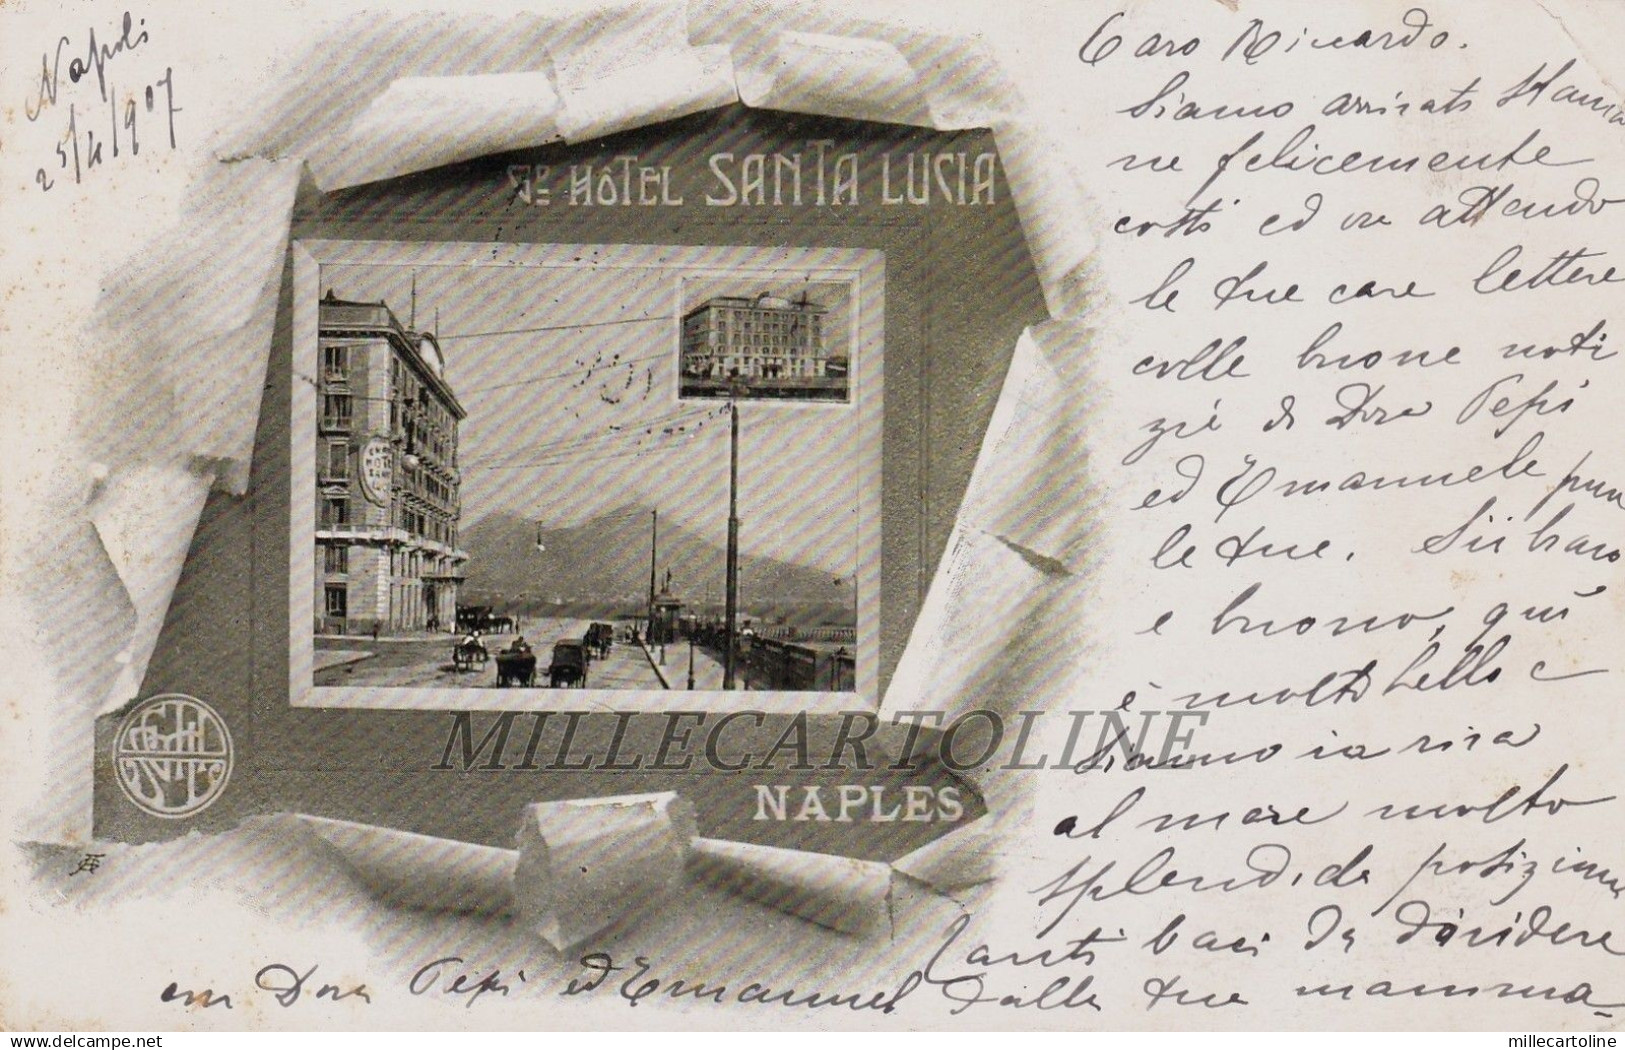 Napoli
25/4/907
Gd HÔTEL SANTA LUCIA
NAPLES
MILLECARTOLINE
Caro Riccardo.
Siamo arrivati stama
ne felicemente
costì ed ora attendo
le tue care lettere
colle buone noti
zie di Dora Pepi
ed Emanuele pure
le tue. Sii bravo
e buono, qui
è molto bello e
siamo in riva
al mare molto
splendida posizione
Tanti baci da dividere
con Dora Pepi ed Emanuel dalla tua mamma-
www.delcampe.net
millecartoline